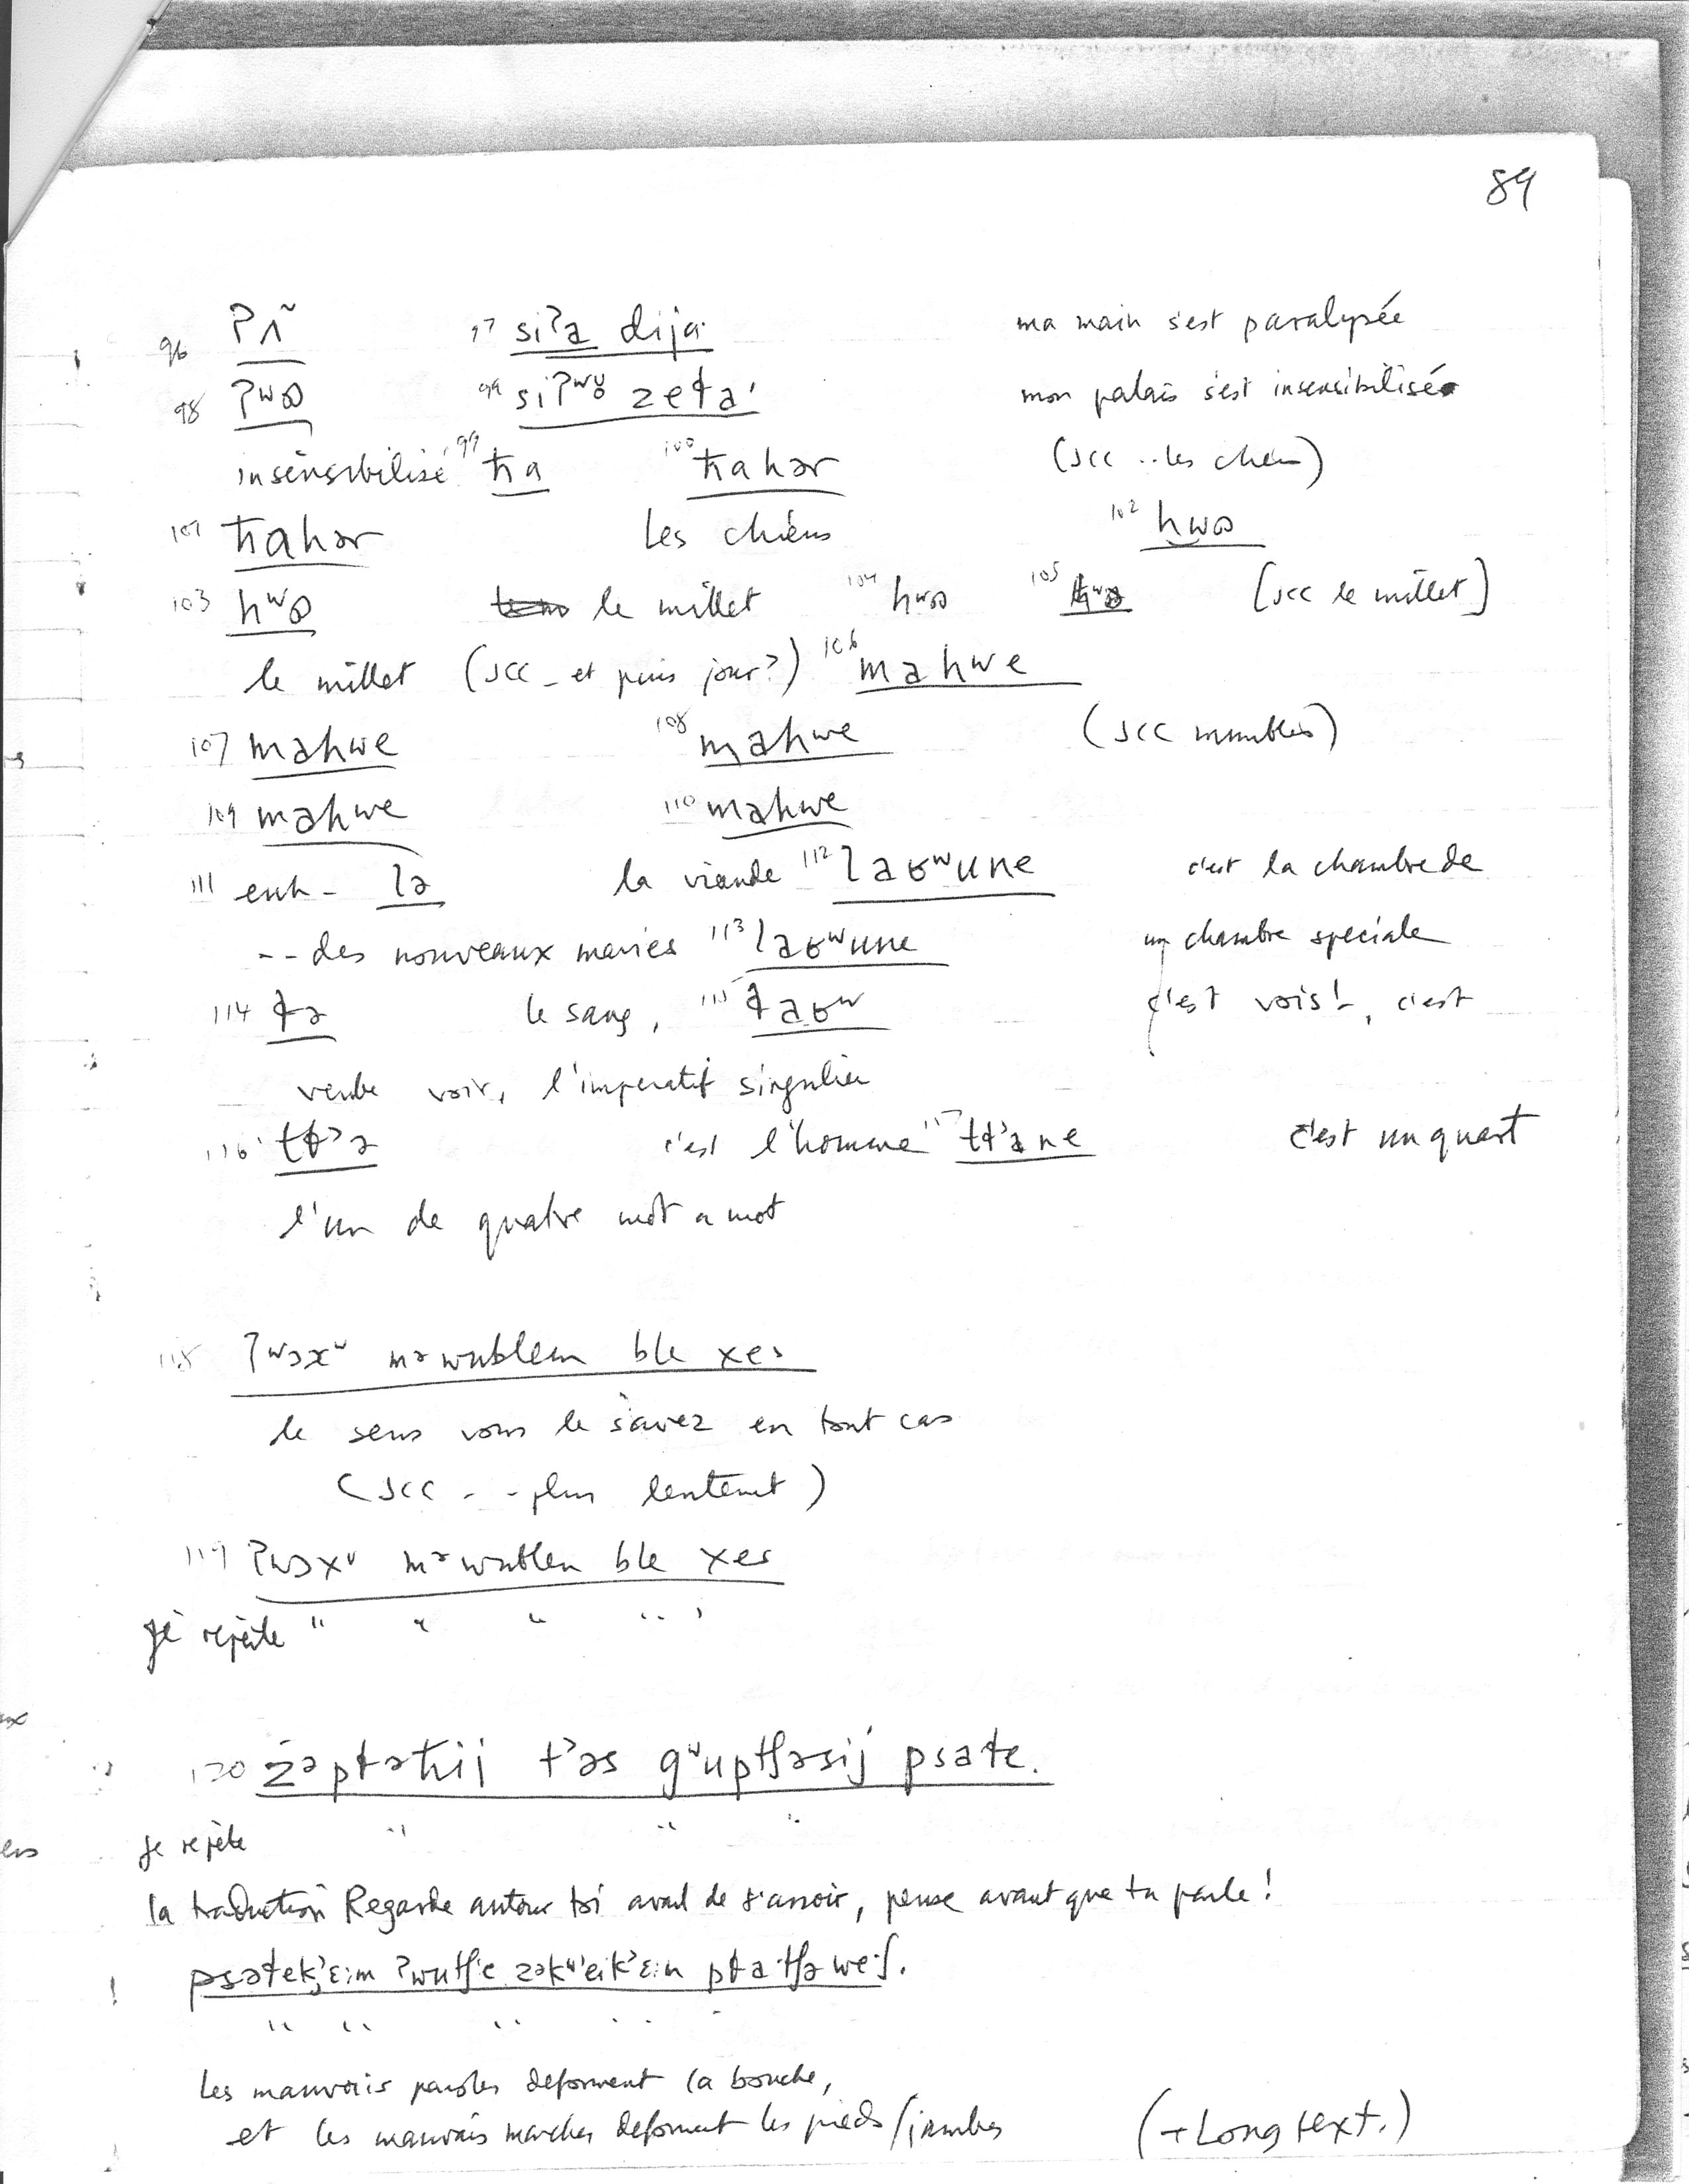 89
96 ʔʌ̃ 97 siʔə dija ma main s'est paralysée
98 ʔʷ 99 siʔʷ zeɬa' mon palais s'est insensibilisé
insensibilisé 99 ħa 100 ħahər (JCC .. les chiens)
101 ħahər les chiens 102
103 le millet 104 105 [JCC le millet]
le millet (JCC - et puis jour?) 106 məhʷe
107 məhwe 108 məhwe (JCC mumbles)
109 məhwe 110 məhwe
111 euh - lə la viande 112 ləʁʷune c'est la chambre de
-- des nouveaux maries 113 ləʁʷune chambre speciale
114 ɬə le sang, 115 ɬəʁʷ c'est vois!, c'est
verbe voir, l'imperatif singulier
116 c'est l'homme 117 c'est un quart
l'un de quatre mot a mot
118 ʔʷɔxʷ mə wublem ble xes
le sens vous le savez en tout cas
(JCC - - plus lentement)
119 ʔwɔxʷ mə wublem ble xes
Je repète " " " "
120 zəpɬəħij t'əs gʷuptʃəsij psaɬe.
Je repète " " "
la traduction Regarde autour toi avant de s'assoir, pense avant que tu parle!
! psəɬek'ɛ:m ʔwutʃ'e zəkʷ'eik'ɛ:n pɬa:tʃəwe:ʃ.
" " " "
Les mauvais paroles deforment la bouche,
et les mauvais marches deforment les pieds/jambes (→ Long text.)